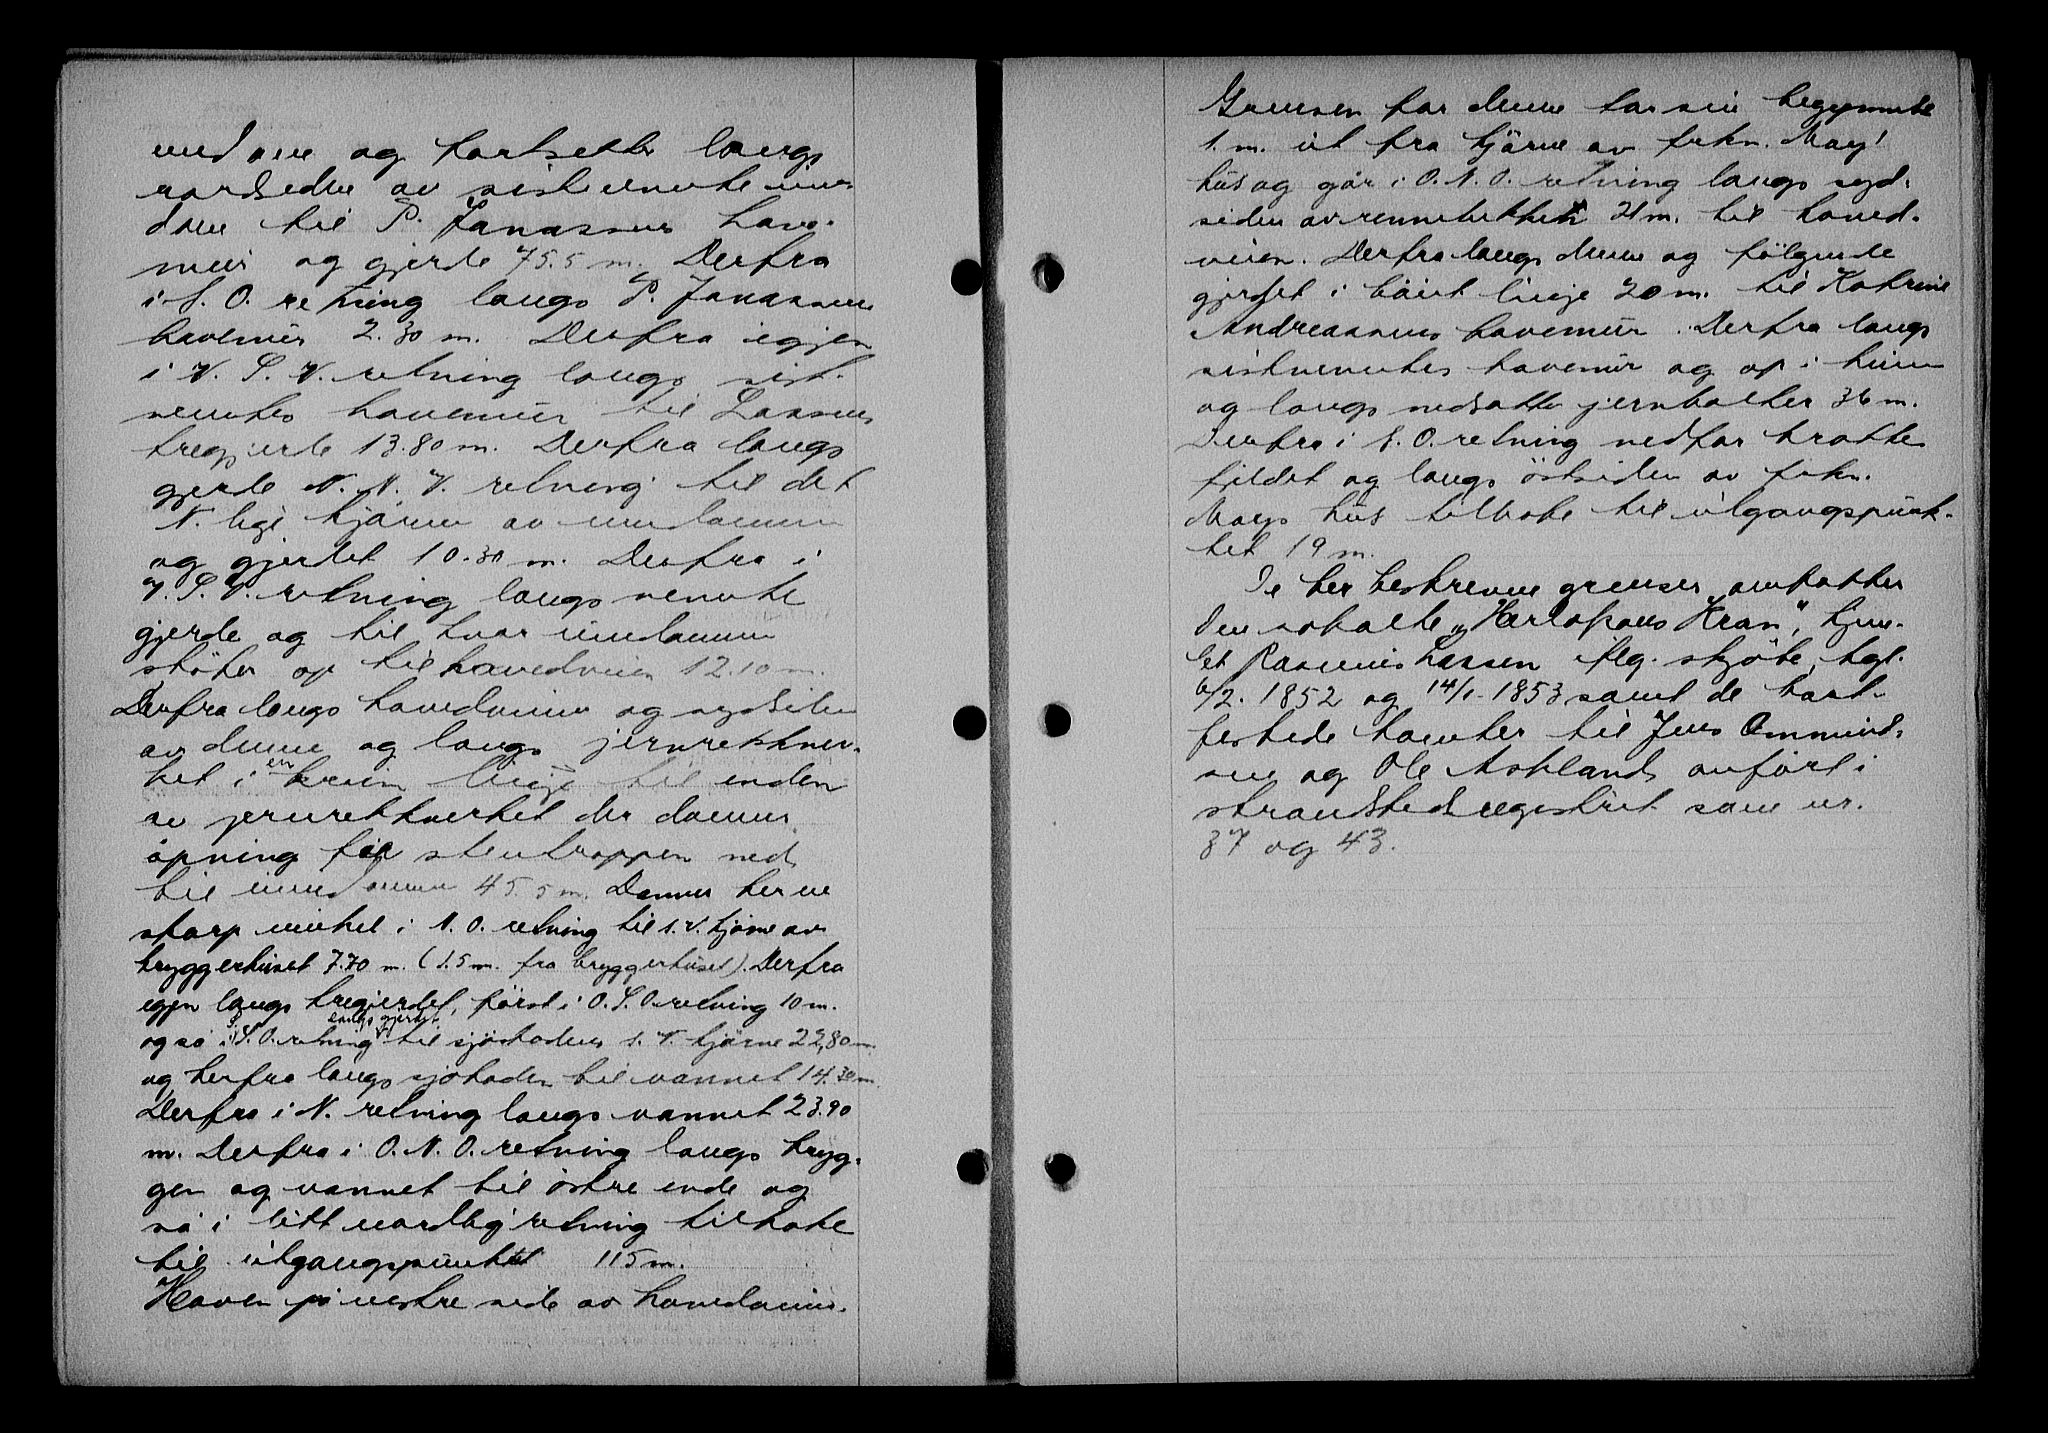 og fortsetter langs
nordsiden av sistnevnte
til P. Janassens have-
mur og gjerde 75.5 m. Derfra
i S. O. retning langs P. Janassens
havemur 2.30 m. Derfra igjen
i V. S. V. retning langs sist-
nevntes havemur til Lassens
tregjerde 13.80 m. Derfra langs
gjerde N. N. V. retning til det
N. lige hjørne av
og gjerdet 10.30 m. Derfra i
V. S. V. retning langs nevnte
gjerde og til hvor
støter op til hovedveien 12.10 m.
Derfra langs hovedveien og sydsiden
av denne og langs jernrekkver-
ket i en krum linje til enden
av jernrekkverket der danner
åpning for stentrappen ned
til 45.5 m. Danner herne
skarp vinkel i N. O. retning til s. v. hjørne av
bryggerhuset 7.70 m. (1.5 m. fra bryggerhuset). Derfra
igjen langs tregjerdet, først i O. S. O. retning 10 m.
og så i S. S. O. retning langs gjerdet til sjøbodens s. v. hjørne 22,80 m.
og herfra langs sjøboden til vannet 14.30 m.
Derfra i N. retning langs vannet 23.90
m. Derfra i O. N. O. retning langs bryg-
gen og vannet til østre ende og
så i litt nordlig retning tilbake
til utgangspunktet 115 m.
Haven på vestre side av hovedveien.
Grensen for denne tar sin begynnelse
1. m. ut fra hjørne av frkn. Mays
hus og går i O. N. O. retning langs syd-
siden av rennebekken 21 m. til hoved-
veien. Derfra langs denne og følgende
gjerdet i bøiet linje 20 m. til Katrine
Andreassens havemur. Derfra langs
sistnevntes havemur og op i heien
og langs nedsatte jernbolter 36 m.
Derfra i S. O. retning nedfor bratte
fjeldet og langs østsiden av frkn.
Mays hus tilbake til utgangspunk-
tet 19 m.
De her beskrevne grenser omfatter
den såkalte "Herlofsens Kran", hjem-
let Rasmus Lassen iflg. skjøte, tgl.
6/2. 1852 og 14/1. 1853 samt de bort-
festede tomter til Jens Ommund-
sen og Ole Askland anført i
strandstedsregistret som nr.
37 og 43.